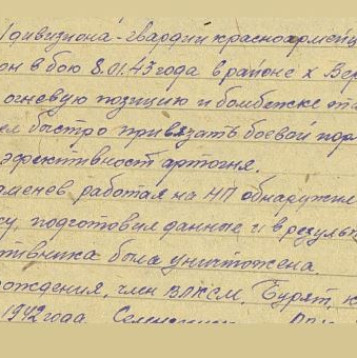 дивизиона - гвардии красноармейц
он в бою 8.01.43 года в районе х Вер
огневую позицию и бомбежке
ем быстро привязать боевой пор
эфективность артогня.
аменев, работая на НП обнаружи
су, подготовил данные и в резуль
отивника была уничтожена
рождения, член ВЛКСМ, Бурят, к
1942 года. Селенгинск